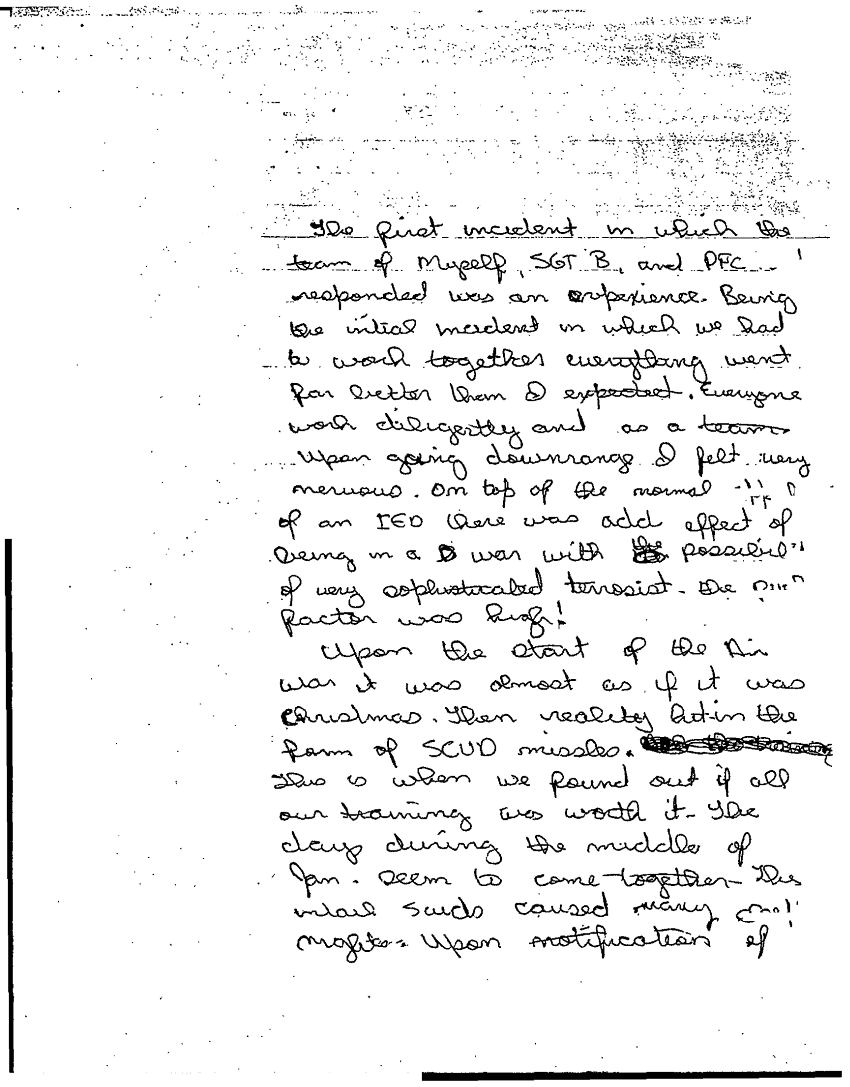 The first incident in which the
team of Myself, SGT B, and PFC
responded was an experience. Being
the intial incident in which we had
to work together everything went
far better than I expected. Everyone
work diligertly and as a team.
Upon going downrange I felt very
nervous. On top of the normal
of an IED there was add effect of
being in a war with the
of very sophisticated terrosist. The
factor was high!
Upon the start of the Air
war it was almost as if it was
Christmas. Then reality hit in the
form of SCUD missles.
This is when we found out if all
our training was worth it. The
days during the middle of
Jan. seem to come together. The
intail scuds caused many
nights. Upon notification of